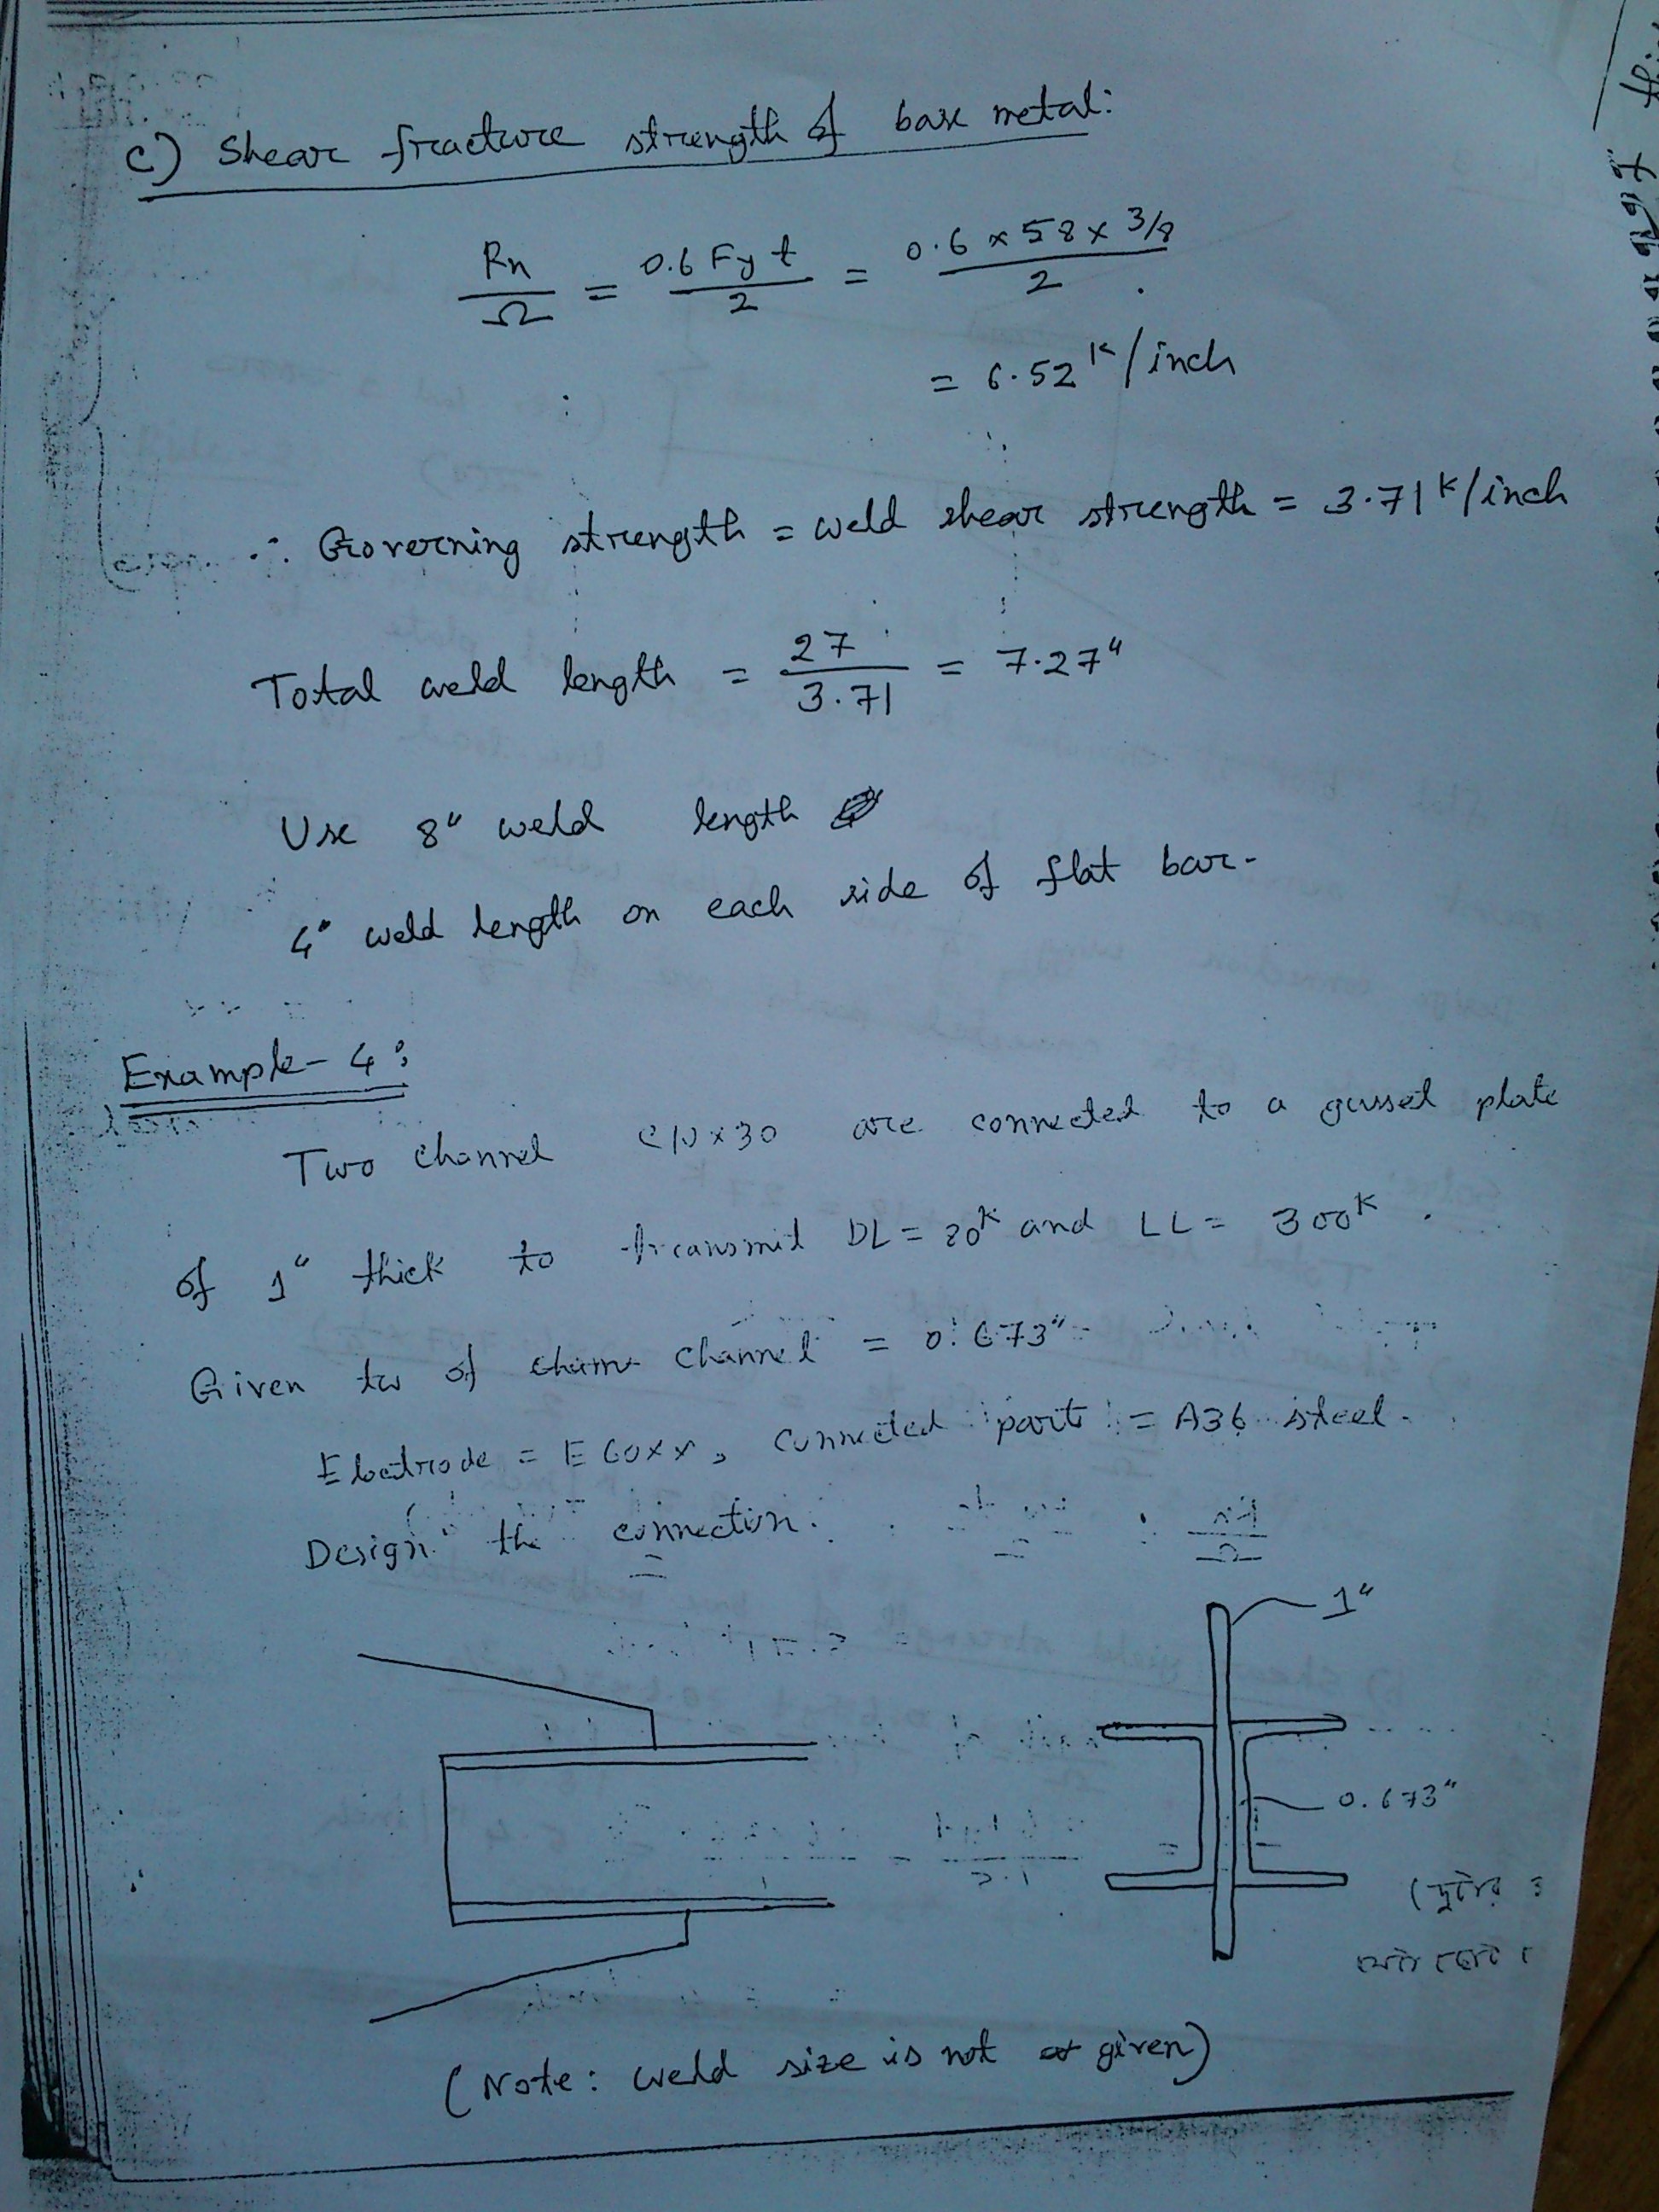 c) Shear fracture strength of base metal:
Rn/Ω = 0.6 Fy t/2 = 0.6 × 58 × 3/8/2
= 6.52 k/inch
∴ Governing strength = weld shear strength = 3.71 k/inch
Total weld length = 27/3.71 = 7.27"
Use 8" weld length
4" weld length on each side of flat bar.
Example-4:
Two channel are connected to a gusset plate
of 1" thick to transmit DL = 20k and LL = 300k.
Given tw of channel = 0.673"
Electrode = E60xx, connected part = A36 steel.
Design the connection.
1"
0.673"
(Note: weld size is not given)